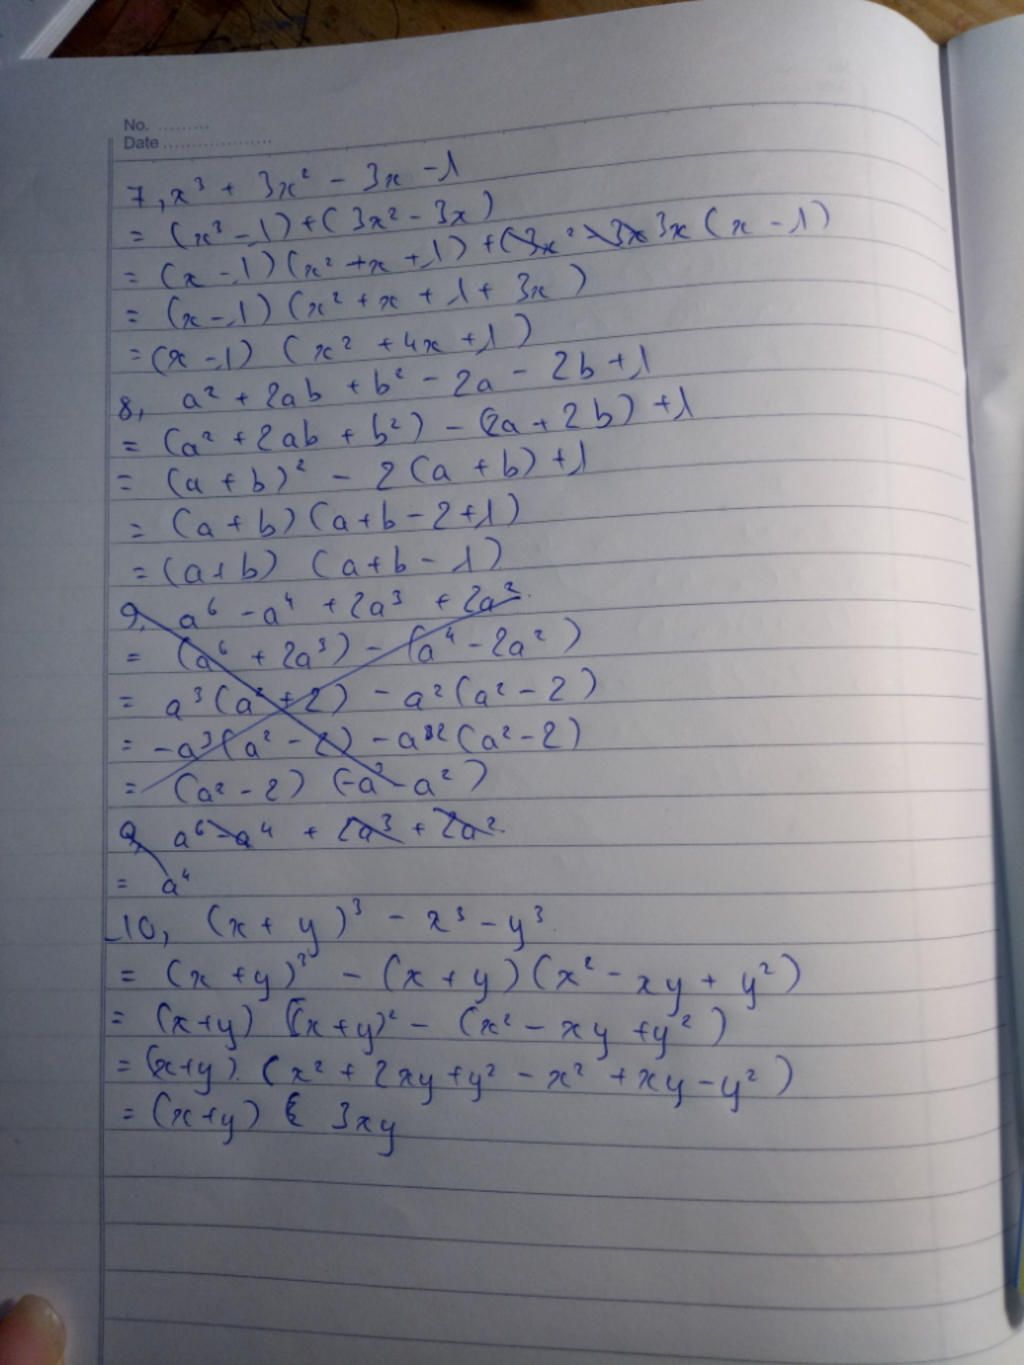 No. .........
Date ...................
7, x³ + 3x² - 3x - 1
= (x³ - 1) + (3x² - 3x)
= (x - 1)(x² + x + 1) + (3x² - 3x 3x (x - 1)
= (x - 1) (x² + x + 1 + 3x)
= (x - 1) (x² + 4x + 1)
8, a² + 2ab + b² - 2a - 2b + 1
= (a² + 2ab + b²) - (2a + 2b) + 1
= (a + b)² - 2(a + b) + 1
= (a + b)(a + b - 2 + 1)
= (a + b) (a + b - 1)
9, a⁶ - a⁴ + 2a³ + 2a²
= (a⁶ + 2a³) - (a⁴ - 2a²)
= a³(a² + 2) - a²(a² - 2)
= -a³(a² - 2) - a²(a² - 2)
= (a² - 2) (-a³ - a²)
9, a⁶ - a⁴ + 2a³ + 2a²
= a⁴
10, (x + y)³ - x³ - y³
= (x + y)³ - (x + y)(x² - xy + y²)
= (x + y) (x + y)² - (x² - xy + y²)
= (x + y). (x² + 2xy + y² - x² + xy - y²)
= (x + y) 3xy